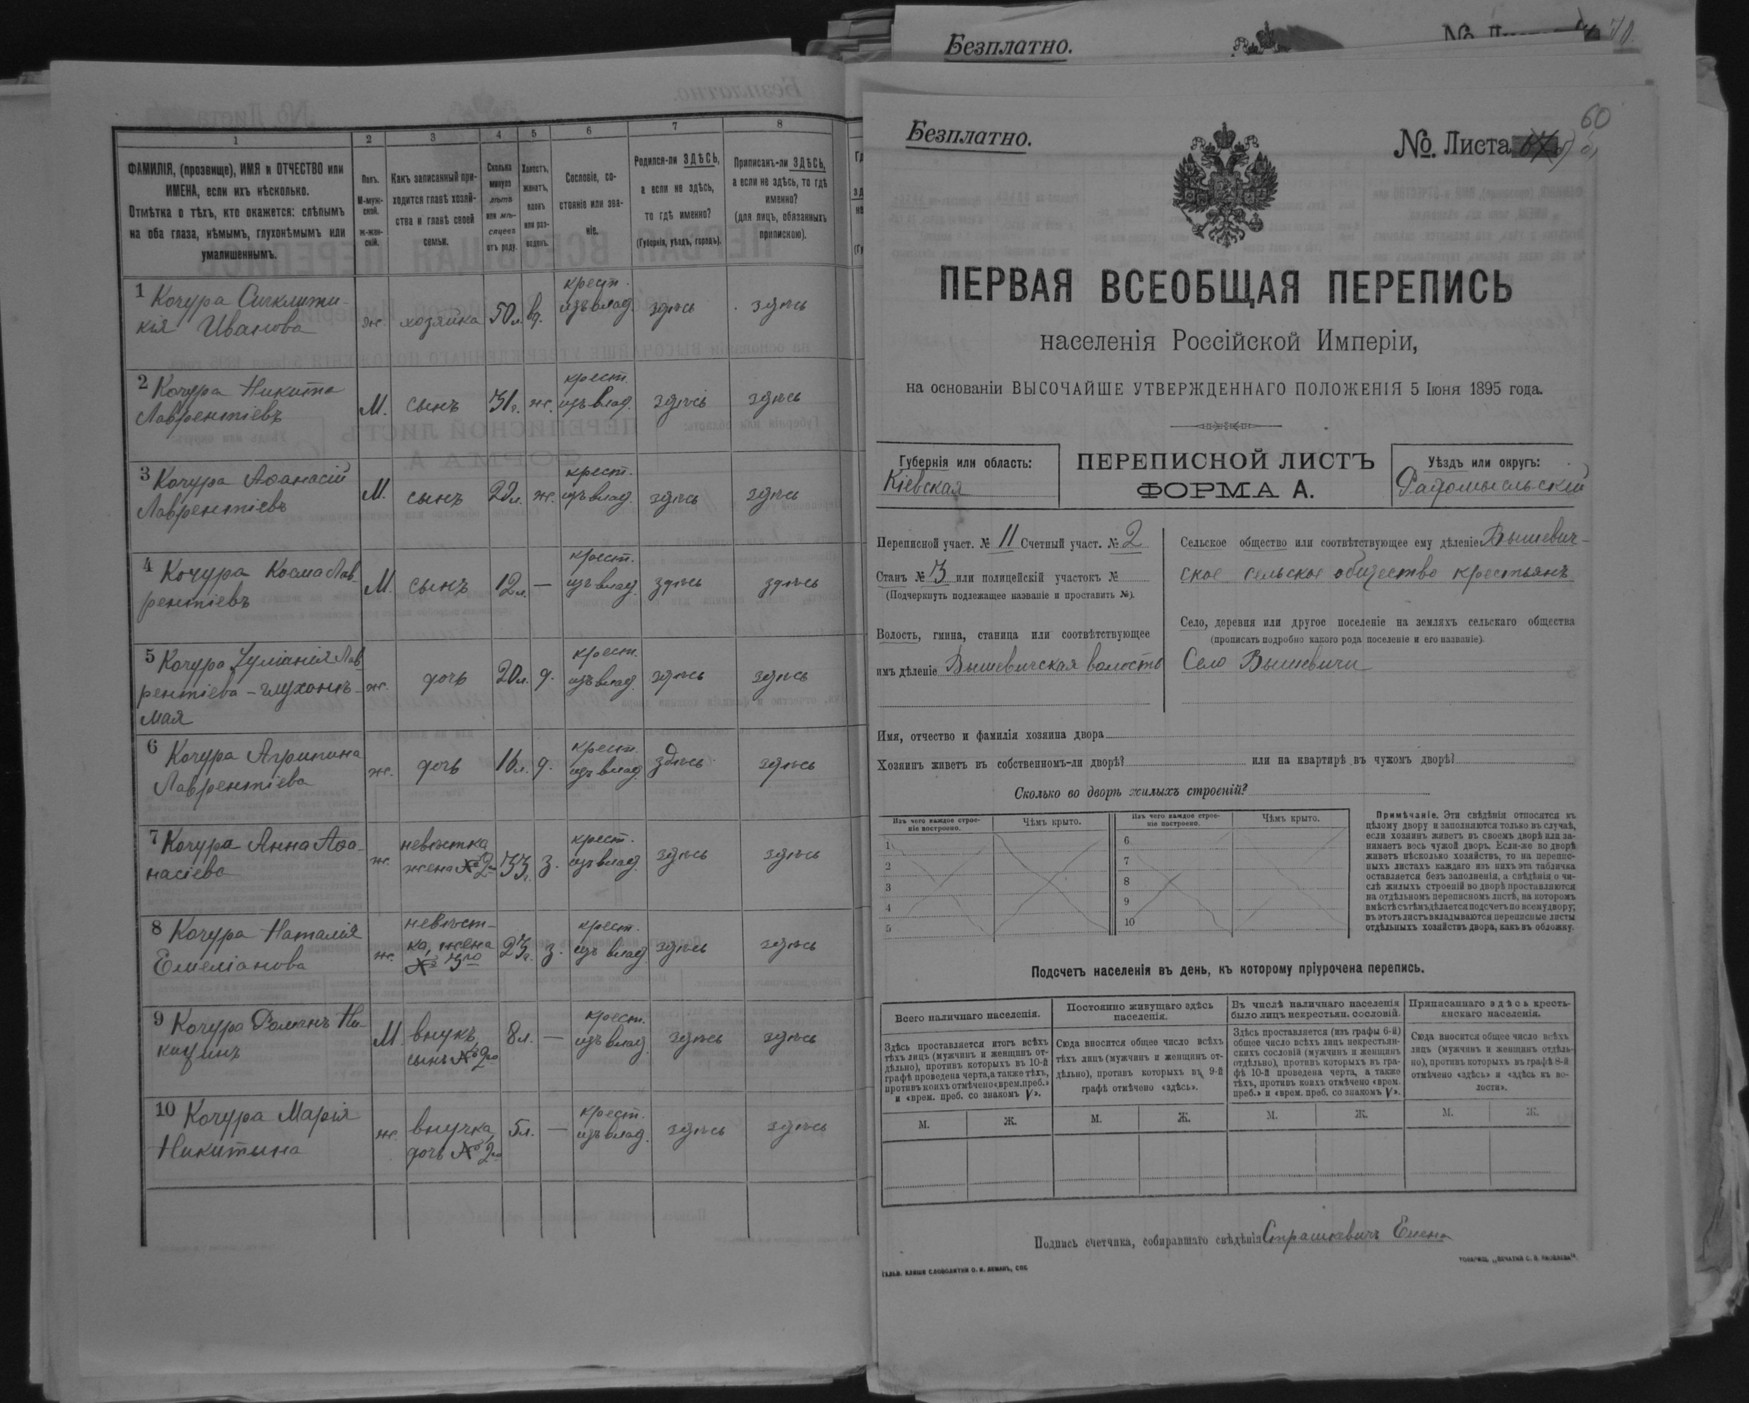 Безплатно.
1 2 3 4 5 6 7 8
ФАМИЛІЯ, (прозвище), ИМЯ и ОТЧЕСТВО или
ИМЕНА, если ихъ нѣсколько.
Отмѣтка о тѣхъ, кто окажется: слѣпымъ
на оба глаза, нѣмымъ, глухонѣмымъ или
умалишеннымъ.
Полъ.
М-муж-
ской.
ж-жен-
скій.
Какъ записанный при-
ходится главѣ хозяй-
ства и главѣ своей
семьи.
Сколько
минуло
лѣтъ
или мѣ-
сяцевъ
отъ роду.
Холостъ,
женатъ,
вдовъ
или раз-
веденъ.
Сословіе, со-
стояніе или зва-
ніе.
Родился-ли ЗДѢСЬ,
а если не здѣсь,
то гдѣ именно?
(Губернія, уѣздъ, городъ).
Приписанъ-ли ЗДѢСЬ,
а если не здѣсь, то гдѣ
именно?
(для лицъ, обязанныхъ
припискою).
1 Кочура
кія Иванова
ж. хозяйка 50 л. в. крест. изъ влад. здѣсь здѣсь
2 Кочура Никита
Лаврентіевъ
М. сынъ 31 г. ж. крест. изъ влад. здѣсь здѣсь
3 Кочура Аѳанасій
Лаврентіевъ
М. сынъ ж. крест. изъ влад. здѣсь здѣсь
4 Кочура Косма Лав
рентіевъ
М. сынъ 12 л. — крест. изъ влад. здѣсь здѣсь
5 Кочура Іуліанія Лав
рентіева - глухонѣ-
мая
ж. дочь 20 л. д. крест. изъ влад. здѣсь здѣсь
6 Кочура Агрипина
Лаврентіева
ж. дочь 16 л. д. крест. изъ влад. здѣсь здѣсь
7 Кочура Анна Аѳа-
насіева
ж. невѣстка жена № 2го 33 г. з. крест. изъ влад. здѣсь здѣсь
8 Кочура Наталія
Емеліанова
ж. невѣст-
ка, жена
№ 3го 23 г. з. крест. изъ влад. здѣсь здѣсь
9 Кочура Романъ Ни-
китинъ
М. внукъ сынъ № 2го 8 л. — крест. изъ влад. здѣсь здѣсь
10 Кочура Марія
Никитина
ж. внучка дочь № 2го 5 л. — крест. изъ влад. здѣсь здѣсь
Безплатно.
№. Листа
60
ПЕРВАЯ ВСЕОБЩАЯ ПЕРЕПИСЬ
населенія Россійской Имперіи,
на основаніи ВЫСОЧАЙШЕ УТВЕРЖДЕННАГО ПОЛОЖЕНІЯ 5 Іюня 1895 года.
Губернія или область:
Кіевская
ПЕРЕПИСНОЙ ЛИСТЪ
ФОРМА А.
Уѣздъ или округъ:
Радомысльскій
Переписной участ. № 11 Счетный участ. № 2
Станъ № 3 или полицейскій участокъ №
(Подчеркнуть подлежащее названіе и проставить №).
Волость, гмина, станица или соотвѣтствующее
имъ дѣленіе Вышевичская волость
Сельское общество или соотвѣтствующее ему дѣленіе Вышевич-
ское сельское общество крестьянъ
Село, деревня или другое поселеніе на земляхъ сельскаго общества
(прописать подробно какого рода поселеніе и его названіе).
Село Вышевичи
Имя, отчество и фамилія хозяина двора
Хозяинъ живетъ въ собственномъ-ли дворѣ? или на квартирѣ въ чужомъ дворѣ?
Сколько во дворѣ жилыхъ строеній?
Изъ чего каждое строе-
ніе построено.
Чѣмъ крыто.
Изъ чего каждое строе-
ніе построено.
Чѣмъ крыто.
1 6
2 7
3 8
4 9
5 10
Примѣчаніе. Эти свѣдѣнія относятся къ
цѣлому двору и заполняются только въ случаѣ,
если хозяинъ живетъ въ своемъ дворѣ или за-
нимаетъ весь чужой дворъ. Если-же во дворѣ
живетъ нѣсколько хозяйствъ, то на перепис-
ныхъ листахъ каждаго изъ нихъ эта табличка
оставляется безъ заполненія, а свѣдѣнія о чи-
слѣ жилыхъ строеній во дворѣ проставляются
на отдѣльномъ переписномъ листѣ, на которомъ
вмѣстѣ съ тѣмъ дѣлается подсчетъ по всему двору;
въ этотъ листъ вкладываются переписные листы
отдѣльныхъ хозяйствъ двора, какъ въ обложку.
Подсчетъ населенія въ день, къ которому пріурочена перепись.
Всего наличнаго населенія.
Здѣсь проставляется итогъ всѣхъ
тѣхъ лицъ (мужчинъ и женщинъ от-
дѣльно), противъ которыхъ въ 10-й
графѣ проведена черта, а также тѣхъ,
противъ коихъ отмѣчено «врем. преб.»
и «врем. преб. со знакомъ V».
М. Ж.
Постоянно живущаго здѣсь
населенія.
Сюда вносится общее число всѣхъ
тѣхъ лицъ (мужчинъ и женщинъ от-
дѣльно), противъ которыхъ въ 9-й
графѣ отмѣчено «здѣсь».
М. Ж.
Въ числѣ наличнаго населенія
было лицъ некрестьян. сословій.
Здѣсь проставляется (изъ графы 6-й)
общее число всѣхъ лицъ некрестьян-
скихъ сословій (мужчинъ и женщинъ
отдѣльно), противъ которыхъ въ гра-
фѣ 10-й проведена черта, а также
тѣхъ, противъ коихъ отмѣчено «врем.
преб.» и «врем. преб. со знакомъ V».
М. Ж.
Приписаннаго здѣсь кресть-
янскаго населенія.
Сюда вносится общее число всѣхъ
лицъ (мужчинъ и женщинъ отдѣль-
но), противъ которыхъ въ графѣ 8-й
отмѣчено «здѣсь» и «здѣсь къ во-
лости».
М. Ж.
Подпись счетчика, собиравшаго свѣдѣнія